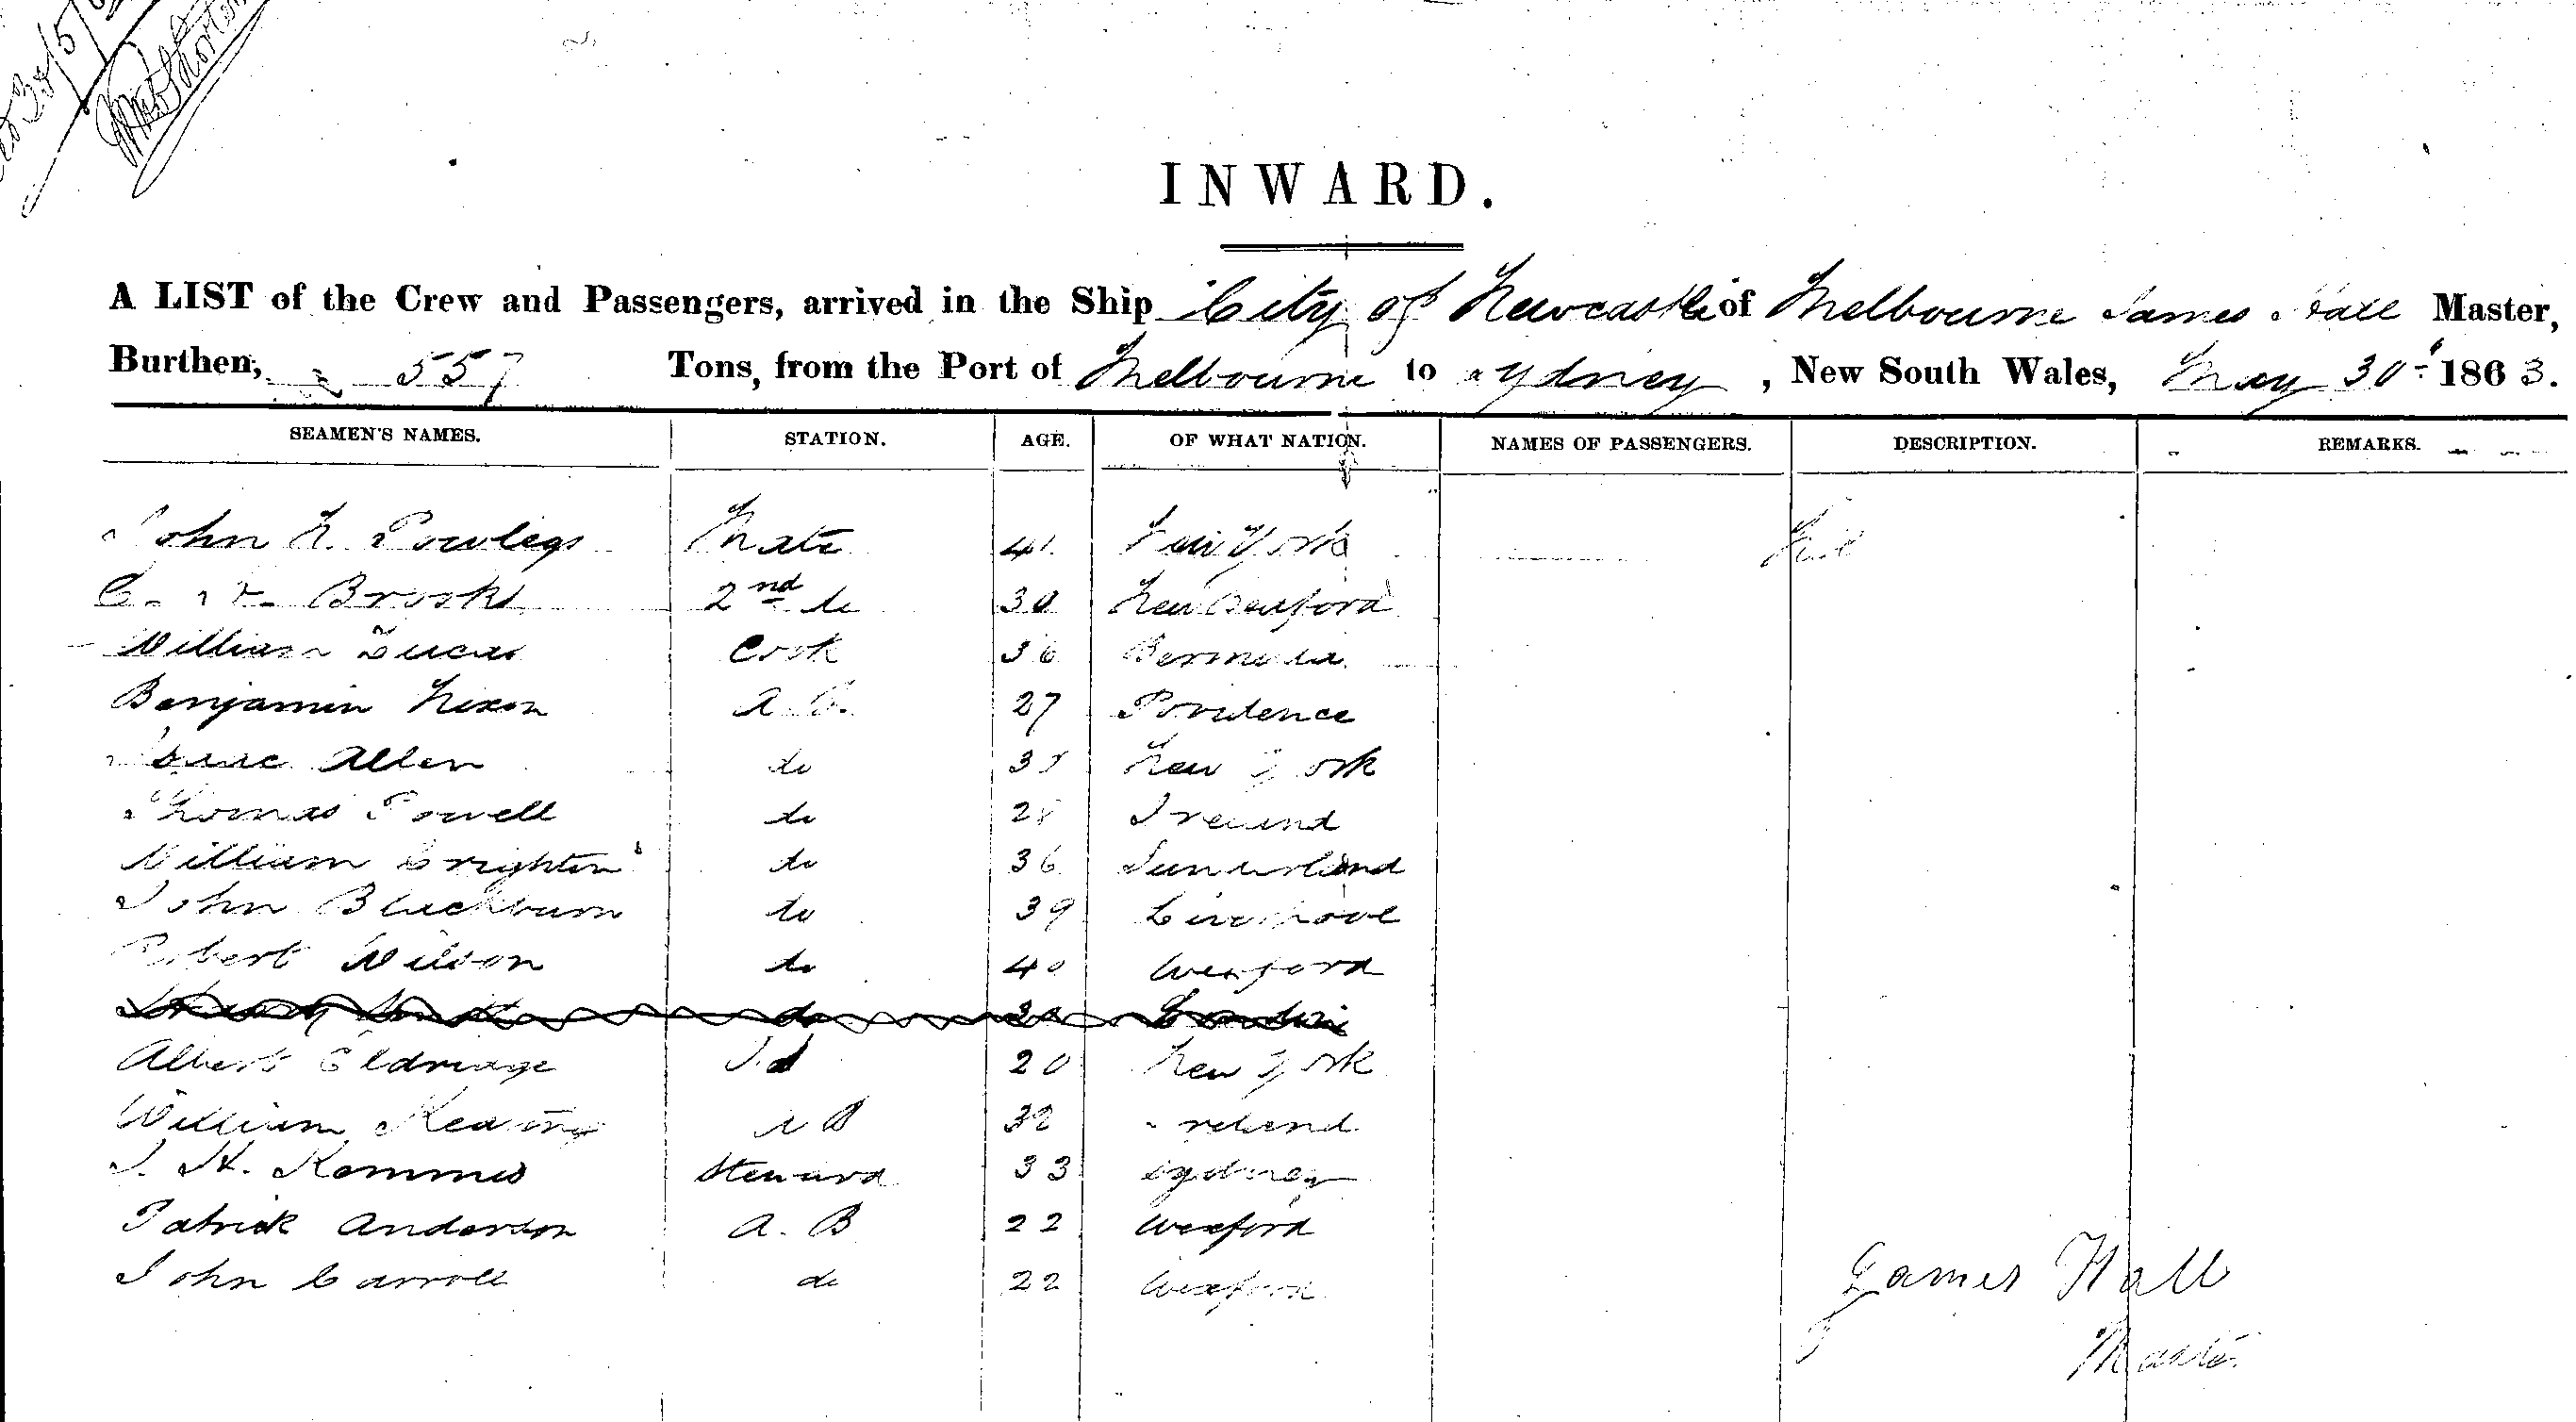 INWARD.
A LIST of the Crew and Passengers, arrived in the Ship City of Newcastle of Melbourne James Hall Master,
Burthen, 557 Tons, from the Port of Melbourne to Sydney, New South Wales, May 30th 1863.
SEAMEN'S NAMES. STATION. AGE. OF WHAT NATION. NAMES OF PASSENGERS. DESCRIPTION. REMARKS.
John N. Mate 41 New York
C. Brooks 2nd do 30 New Bedford
William Lucas Cook 36 Bermuda
Benjamin Nixon A. B. 27 Providence
Isaac Allen do New York
Thomas Powell do 28 Ireland
William Crighton do 36 Sunderland
John Blackburn do 39 Liverpool
Robert Wilson do 40 Wexford
Albert Eldridge 20 New York
William Keating A B 32 Ireland
J. H. Kemmis Steward 33 Sydney
Patrick Anderson A. B 22 Wexford
John Carroll do 22 Wexford
James Hall
Master